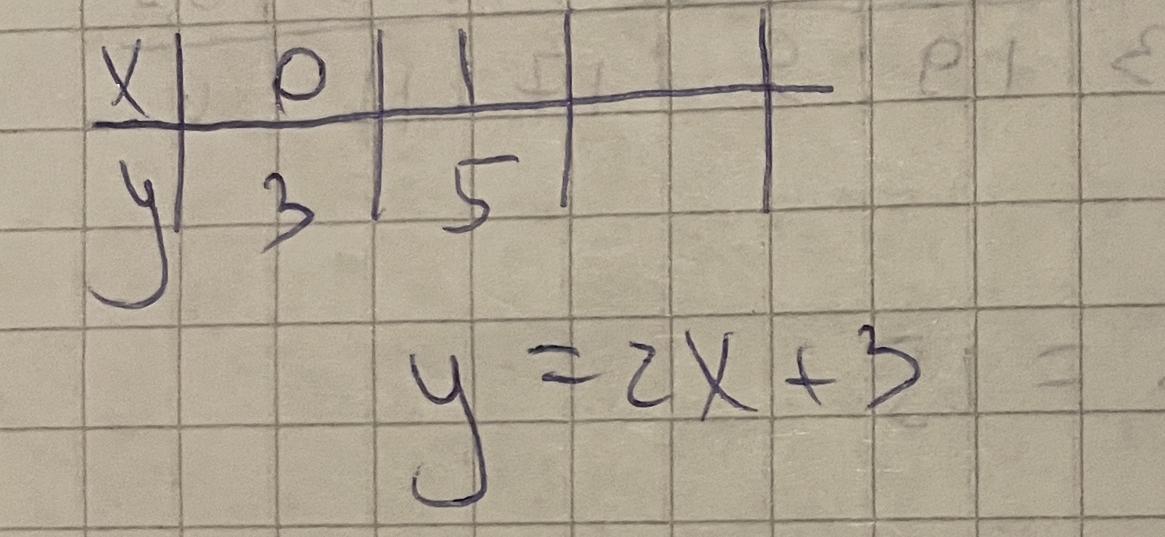 x 0 1
y 3 5
y = 2x + 3